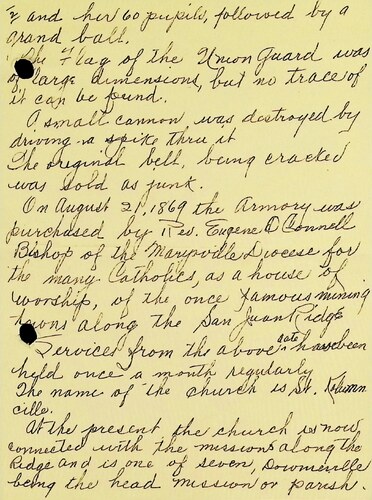 & and her 60 pupils, followed by a
grand ball.
The Flag of the Union Guard was
of large dimensions, but no trace of
it can be found.
A small cannon was destroyed by
driving a spike thru it
The original bell, being cracked
was sold as junk.
On August 21, 1869 the Armory was
purchased by Rev. Eugene O'Connell
Bishop of the Marysville Diocese for
the many Catholics, as a house of
worship, of the once famous mining
towns along the San Juan Ridge
Services from the above date have been
held once a month regularly
The name of the church is St. Kolumn
cille.
At the present the church is now,
connected with the missions along the
Ridge and is one of seven, Downieville
being the head mission or parish.